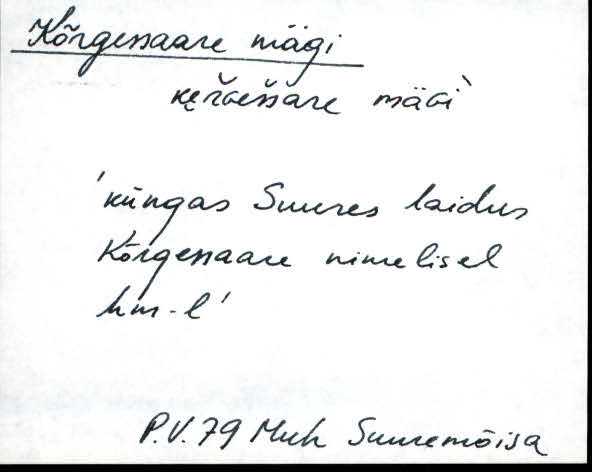 Kõrgessaare mägi
kęřɢeššare mäɢi`
'küngas Suures laidus
Kõrgessaare nimelisel
hm-l'
P.V.79 Muh Suuremõisa